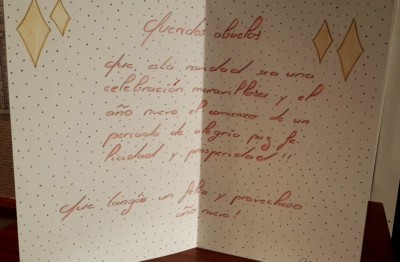 Queridos abuelos
Que está navidad sea una
celebración maravillosa y el
año nuevo el comienzo de un
periodo de alegría paz fe
licidad y prosperidad!!
Que tengáis un feliz y provechoso
año nuevo!